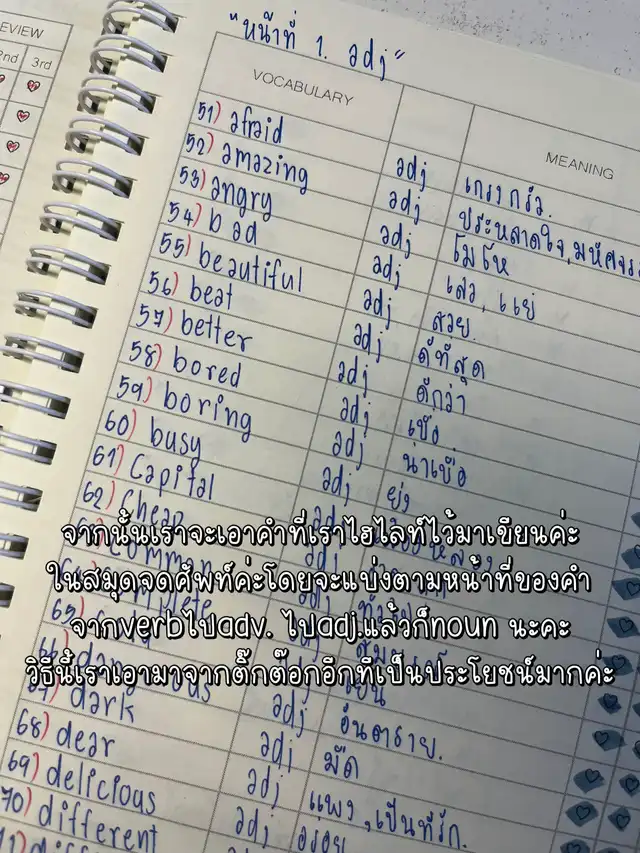 EVIEW
2nd 3rd
"หน้าที่ 1. adj"
VOCABULARY MEANING
51) afraid adj เกรงกลัว.
52) amazing adj ประหลาดใจ,มหัศจรร
53) angry adj โมโห
54) bad adj เลว, แย่
55) beautiful adj สวย.
56) beat adj ดีที่สุด
57) better adj ดีกว่า
58) bored adj เบื่อ
59) boring adj น่าเบื่อ
60) busy adj ยุ่ง
61) Capital adj
62) Cheap
จากนั้นเราจะเอาคำที่เราไฮไลท์ไว้มาเขียนค่ะ
ในสมุดจดศัพท์ค่ะโดยจะแบ่งตามหน้าที่ของคำ
จากverbไปadv. ไปadj.แล้วก็noun นะคะ
วิธีนี้เราเอามาจากติ๊กต๊อกอีกทีเป็นประโยชน์มากค่ะ
65)
66) adj
67) dark adj อันตราย.
68) dear adj มืด
69) delicious adj แพง,เป็นที่รัก.
70) different adj อร่อย